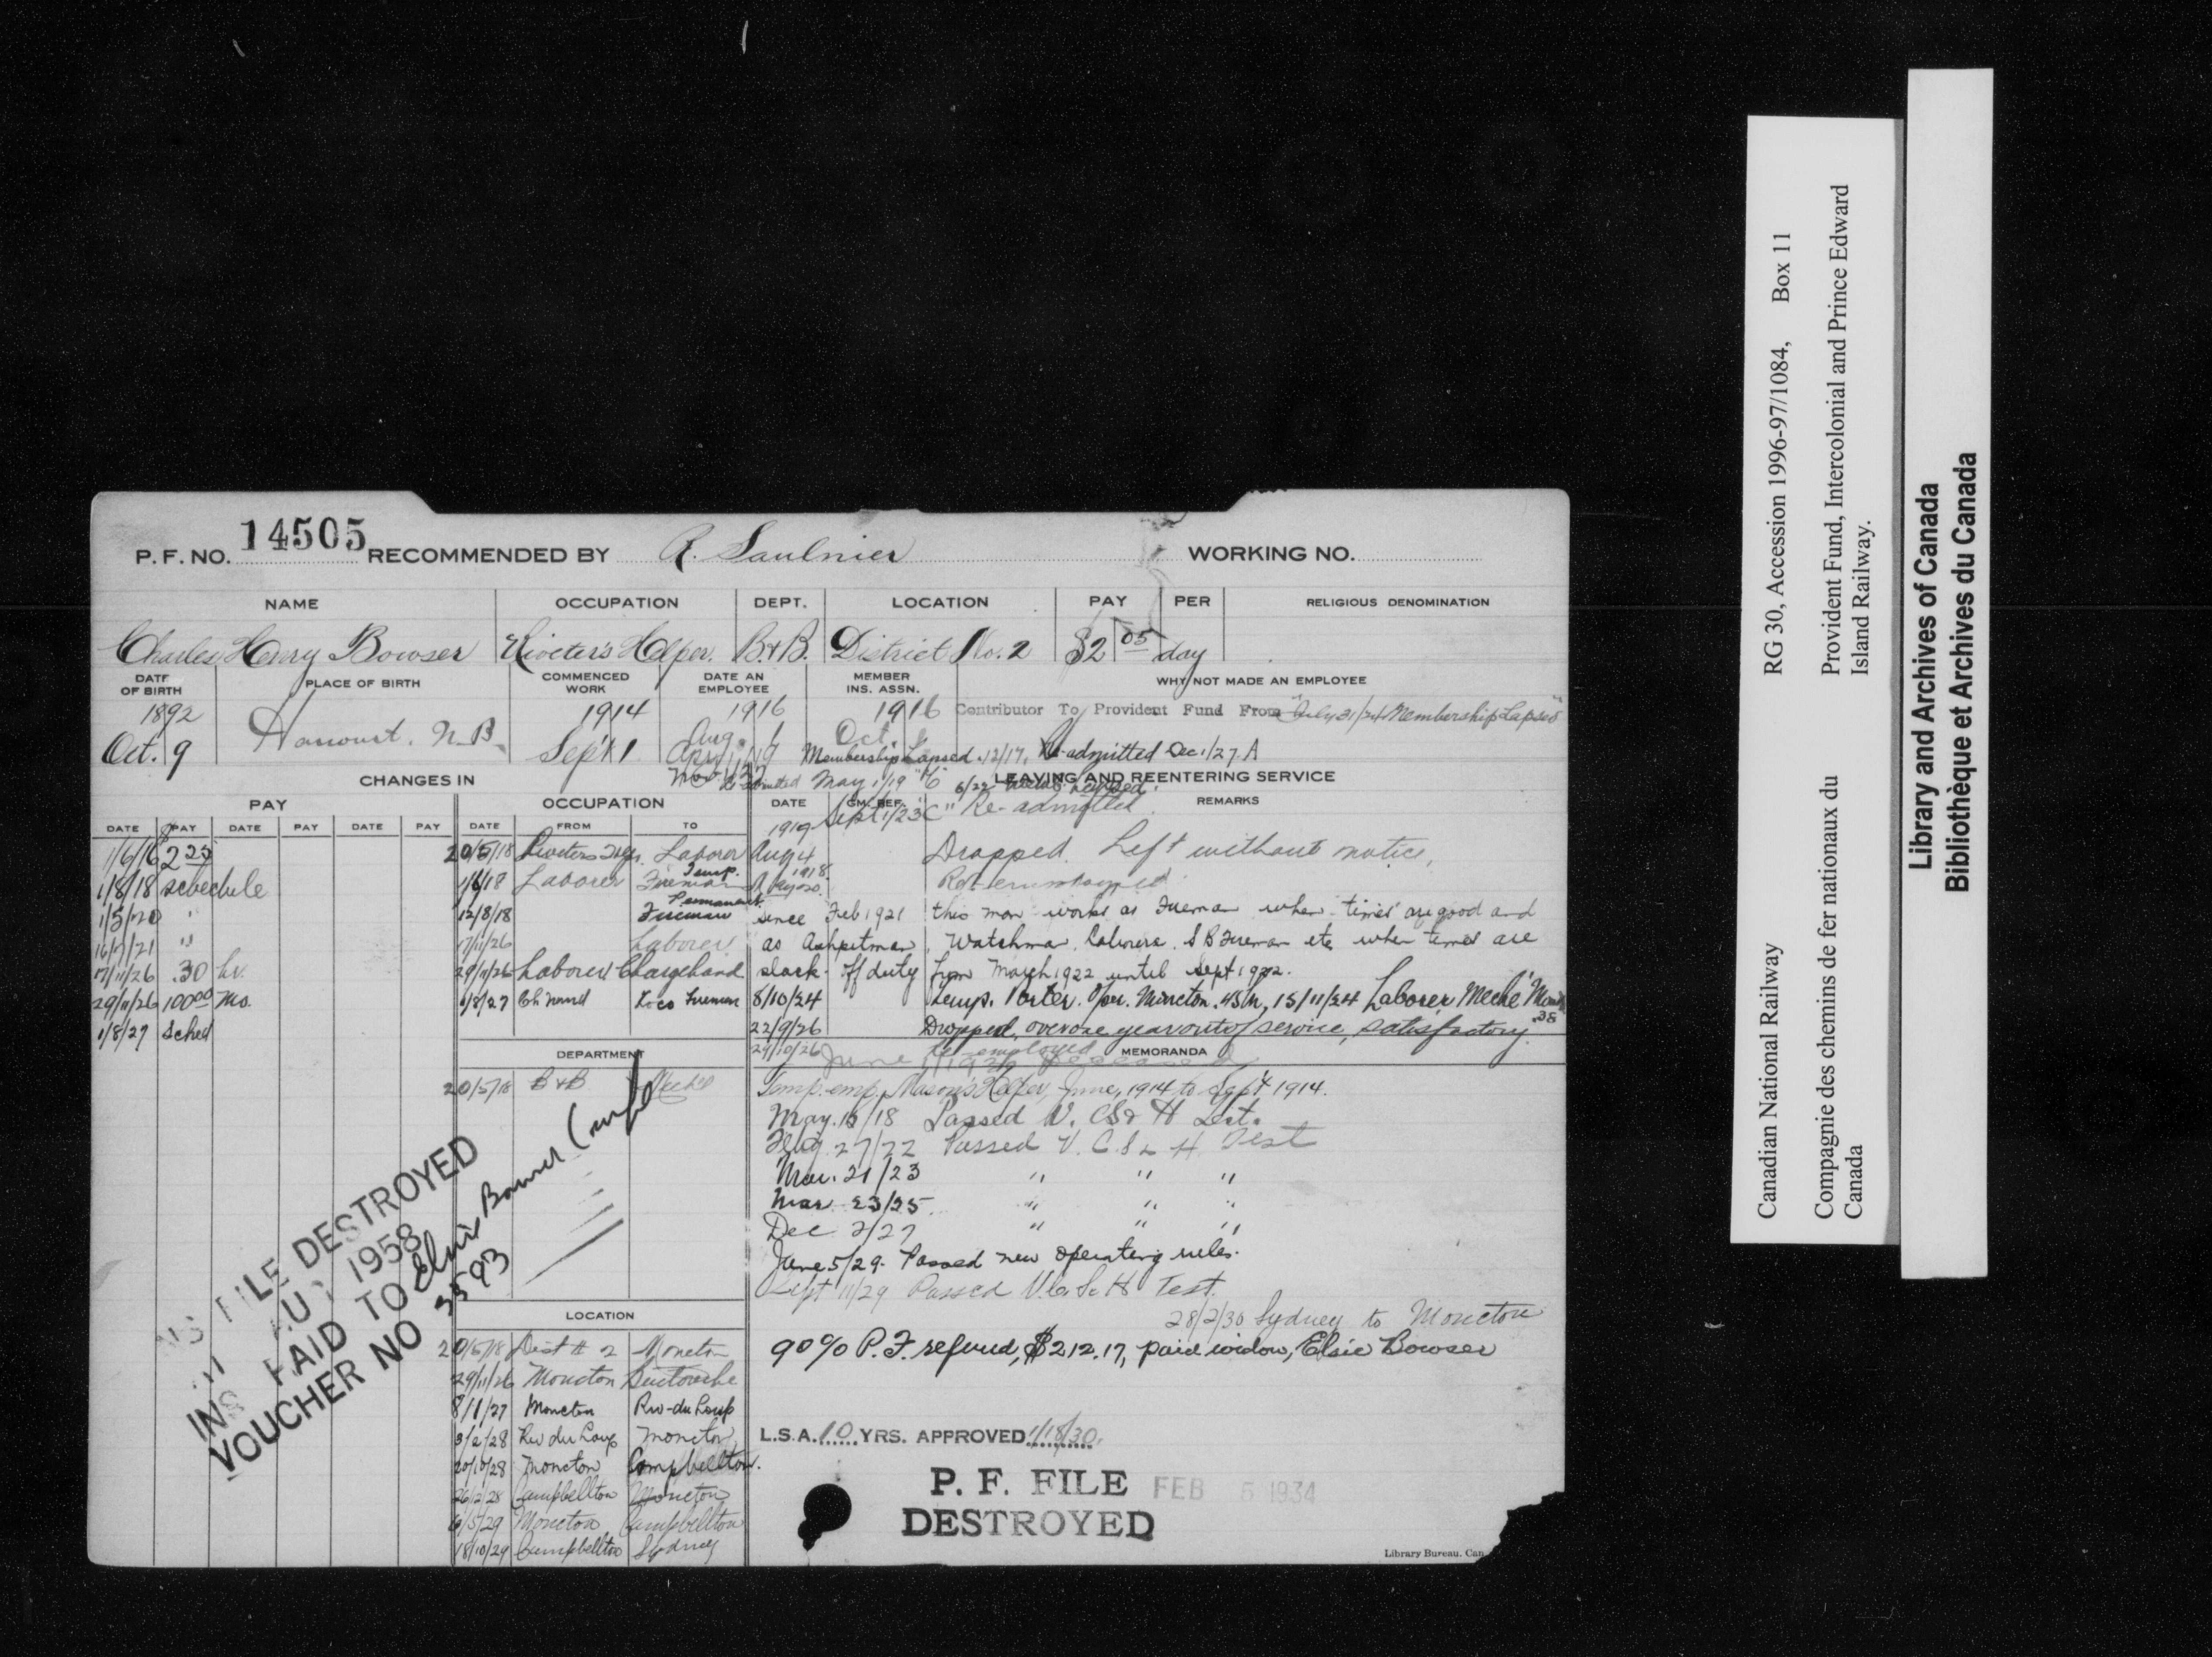 P.F. NO. 14505 RECOMMENDED BY R. Saulnier WORKING NO.
NAME OCCUPATION DEPT. LOCATION PAY PER RELIGIOUS DENOMINATION
Charles Henry Bowser Riveter's Helper. B.&B. District No. 2 $2 05 day
DATE OF BIRTH PLACE OF BIRTH COMMENCED WORK DATE AN EMPLOYEE MEMBER INS. ASSN. WHY NOT MADE AN EMPLOYEE
1892 Harcourt, N.B. 1914 1916 1916 Contributor To Provident Fund From July 31/24 Membership Lapsed
Oct. 9 Sept 1 Aug. 1 Oct.
Membership Lapsed 12/17. Re-admitted Dec 1/27 A
May 1/19 6/22
CHANGES IN LEAVING AND REENTERING SERVICE
PAY OCCUPATION DATE GM. REF. REMARKS
Sept 1/23 "C" Re-admitted
DATE PAY DATE PAY DATE PAY DATE FROM TO 1919
1/6/16 $2 25 20/5/18 Riveters Laborer Aug 4 Dropped. Left without notice.
1/8/18 schedule 1/6/18 Laborer Temp. Fireman
1/5/20 " 12/8/18 Permanent Fireman since Feb 1921 this man works as Fireman when times are good and
16/7/21 " 17/11/26 Laborer as Ashpitman, Watchman, Laborer, S B Fireman etc when times are
17/11/26 .30 hr. 29/11/26 Laborer Chargehand slack. Off duty from March 1922 until Sept 1922.
29/11/26 100 00 Mo. 1/8/27 Ch'hand Loco Fireman 8/10/24 Temp. Porter. Oper. Moncton. 15/11/24 Laborer, Mech'l
1/8/27 Sched 22/9/26 Dropped, over one year out of service, satisfactory.
29/10/26 re-employed
DEPARTMENT MEMORANDA
June 1930 Deceased
20/5/18 B & B Mech'l Temp. emp. Mason's Helper, June, 1914 to Sept 1914.
May. 18/18 Passed V. CS & H Test.
Aug. 27/22 Passed V. C. S & H. Test
Mar. 21/23 " " "
Mar 23/25 " " "
Dec 2/27 " " "
June 5/29. Passed new operating rules.
Sept 11/29 Passed V. C. S. H Test.
28/2/30 Sydney to Moncton
90% P.F. refund, $212.17, paid widow, Elsie Bowser
FILE DESTROYED
1958
INS PAID TO Elsie Bowser
VOUCHER NO 3593
LOCATION
20/5/18 Dist # 2 Moncton
29/11/26 Moncton Buctouche
8/1/27 Moncton Riv-du Loup
3/2/28 Riv du Loup Moncton
20/10/28 Moncton Campbellton.
26/12/28 Campbellton Moncton
6/5/29 Moncton Campbellton
18/10/29 Campbellton Sydney
L.S.A. 10 YRS. APPROVED 1/18/30.
P. F. FILE FEB 5 1934
DESTROYED
Library Bureau. Can
Canadian National Railway RG 30, Accession 1996-97/1084, Box 11
Compagnie des chemins de fer nationaux du Provident Fund, Intercolonial and Prince Edward
Canada Island Railway.
Library and Archives of Canada
Bibliothèque et Archives du Canada